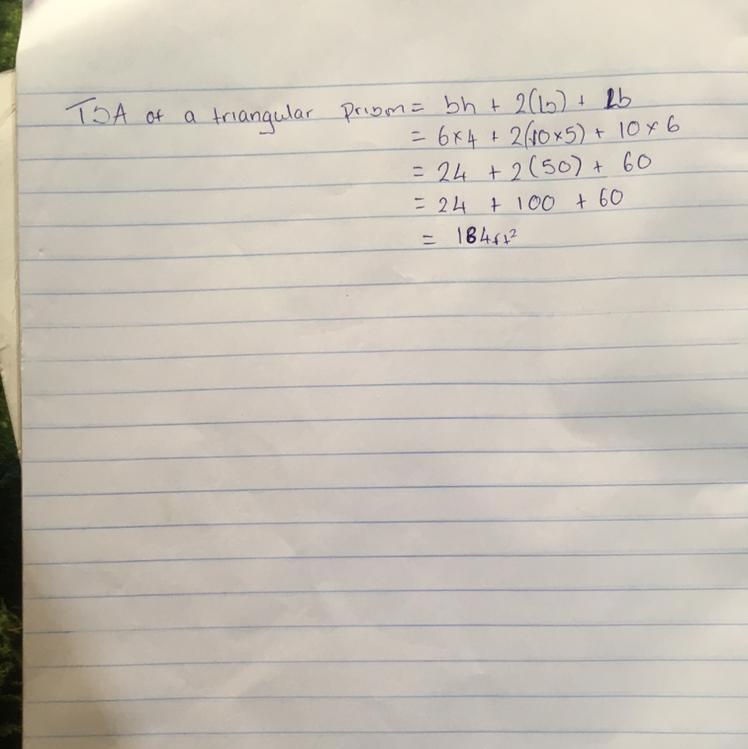 TSA of a triangular Prism = bh + 2(lb) + lb
= 6×4 + 2(10×5) + 10×6
= 24 + 2(50) + 60
= 24 + 100 + 60
= 184ft²